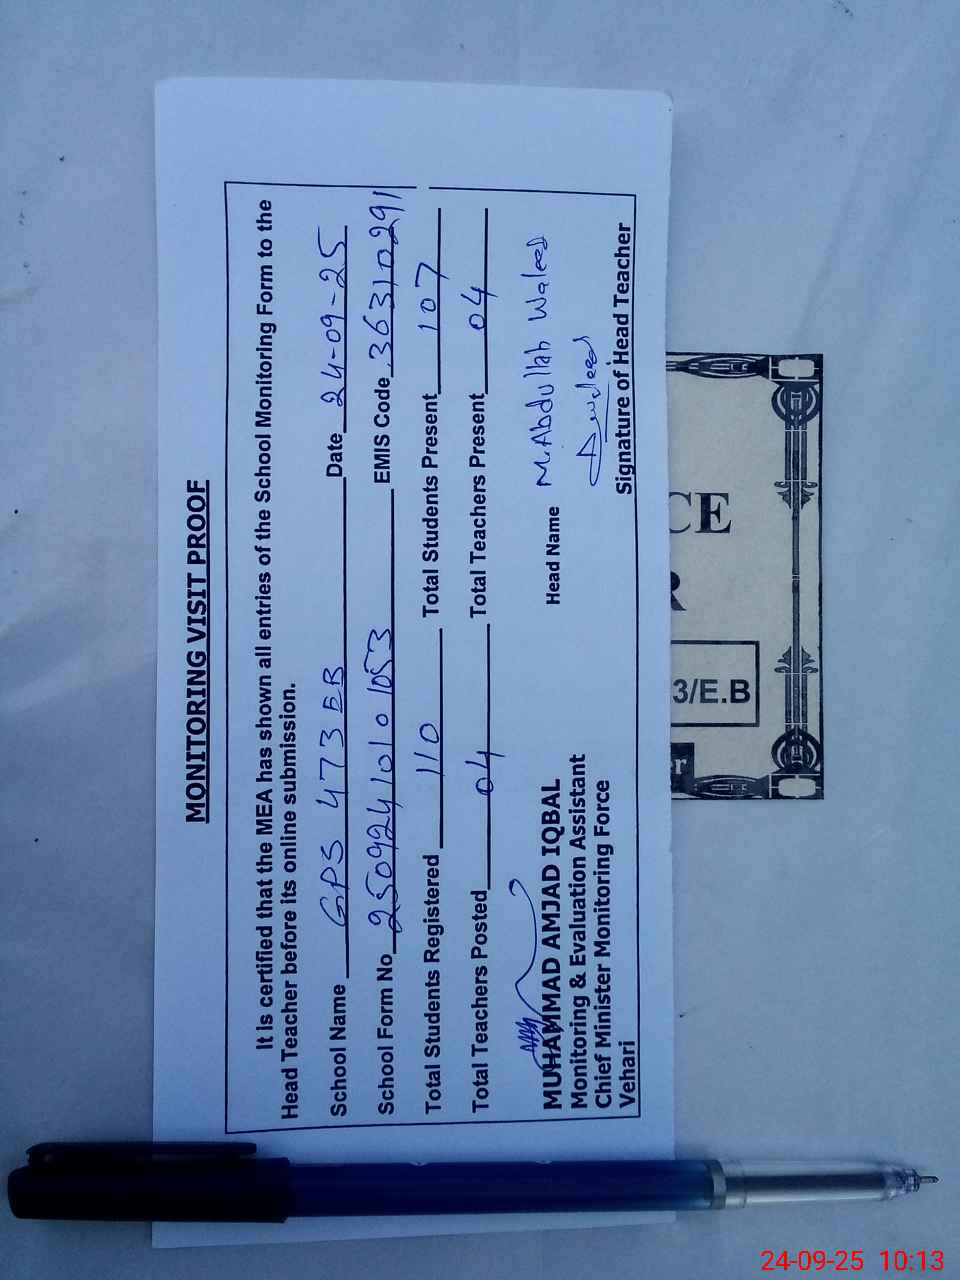 MONITORING VISIT PROOF
It is certified that the MEA has shown all entries of the School Monitoring Form to the
Head Teacher before its online submission.
School Name GPS 473 EB Date 24-09-25
School Form No 25092410101053 EMIS Code 36310291
Total Students Registered 110 Total Students Present 107
Total Teachers Posted 04 Total Teachers Present 04
MUHAMMAD AMJAD IQBAL
Monitoring & Evaluation Assistant
Chief Minister Monitoring Force
Vehari
Head Name M. Abdullah Waleed
Signature of Head Teacher
CE
R
3/E.B
r
24-09-25 10:13